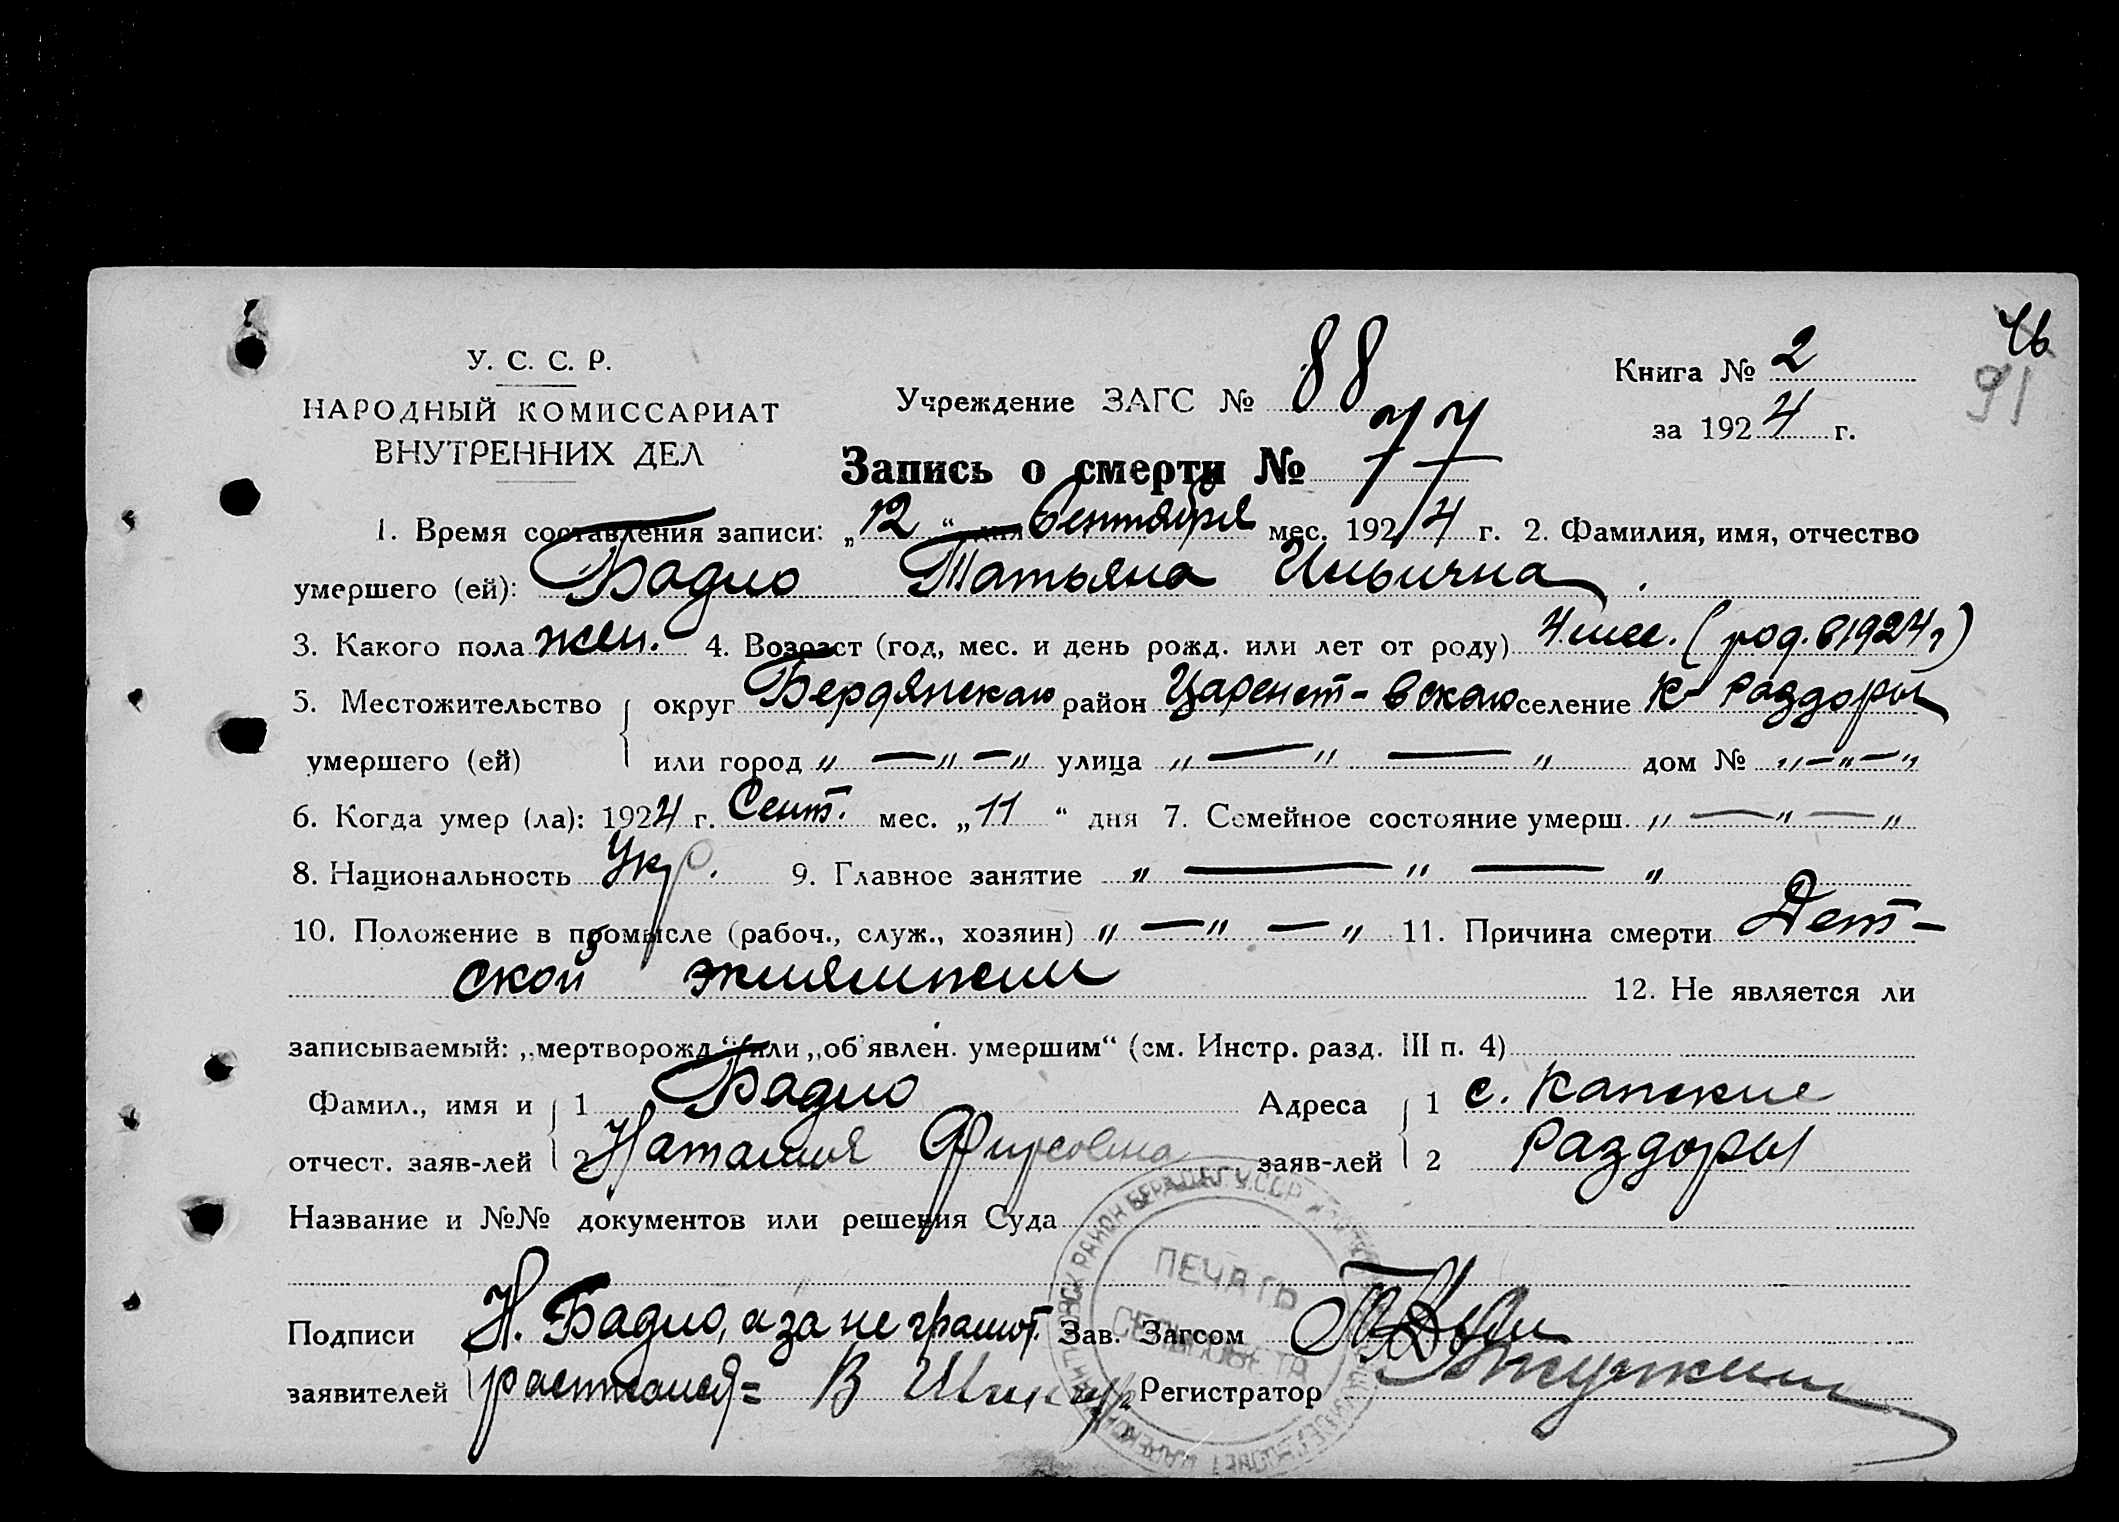 46
91
У. С. С. Р.
НАРОДНЫЙ КОМИССАРИАТ
ВНУТРЕННИХ ДЕЛ
Учреждение ЗАГС № 88
Книга № 2
за 1924 г.
Запись о смерти № 77
1. Время составления записи: „12“ дня Сентября мес. 1924 г. 2. Фамилия, имя, отчество
умершего (ей): Бадло Татьяна Ильична
3. Какого пола жен. 4. Возраст (год, мес. и день рожд. или лет от роду) 4 мес. (род. в 1924 г)
5. Местожительство округ Бердянская район Цареконст-вская селение К-Раздоры
умершего (ей) или город „ — „ — „ улица „ — „ — „ дом № „ — „ — „
6. Когда умер (ла): 1924 г. Сент. мес. „11“ дня 7. Семейное состояние умерш. „ — „ — „
8. Национальность Укр. 9. Главное занятие „ — „ — „
10. Положение в промысле (рабоч., служ., хозяин) „ — „ — „ 11. Причина смерти Дет-
ской 12. Не является ли
записываемый: „мертворожд.“ или „об'явлен. умершим“ (см. Инстр. разд. III п. 4)
Фамил., имя и 1 Бадло Адреса 1 с. Капские
отчест. заяв-лей 2 Наталия Фирсовна заяв-лей 2 Раздоры
Название и №№ документов или решения Суда
Подписи Н. Бадло, а за не грамот. Зав. Загсом
заявителей В Регистратор
ПЕЧАТЬ
СЕЛЬСОВЕТА